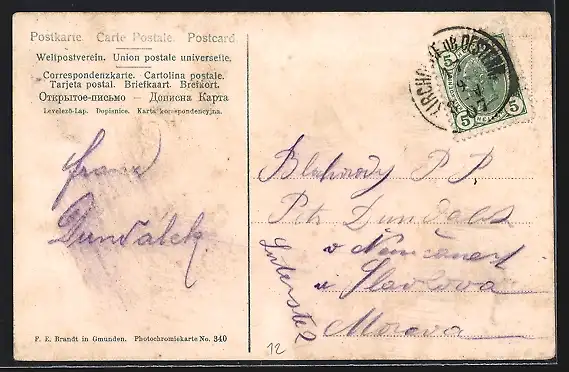 Postkarte Carte Postale. Postcard
Weltpostverein. Union postale universelle.
Correspondenzkarte. Cartolina postale.
Tarjeta postal. Briefkaart. Brefkort.
Открытое-письмо — Дописна Карта
Levelező-Lap. Dopisnice. Karta korrespondencyjna.
Franz
Dundálek
F. E. Brandt in Gmunden. Photochromiekarte No. 340
5 5
5
HELLER
Blahorody P P
Petr Dundalek
v Němčanech
u Slavkova
Morava
12